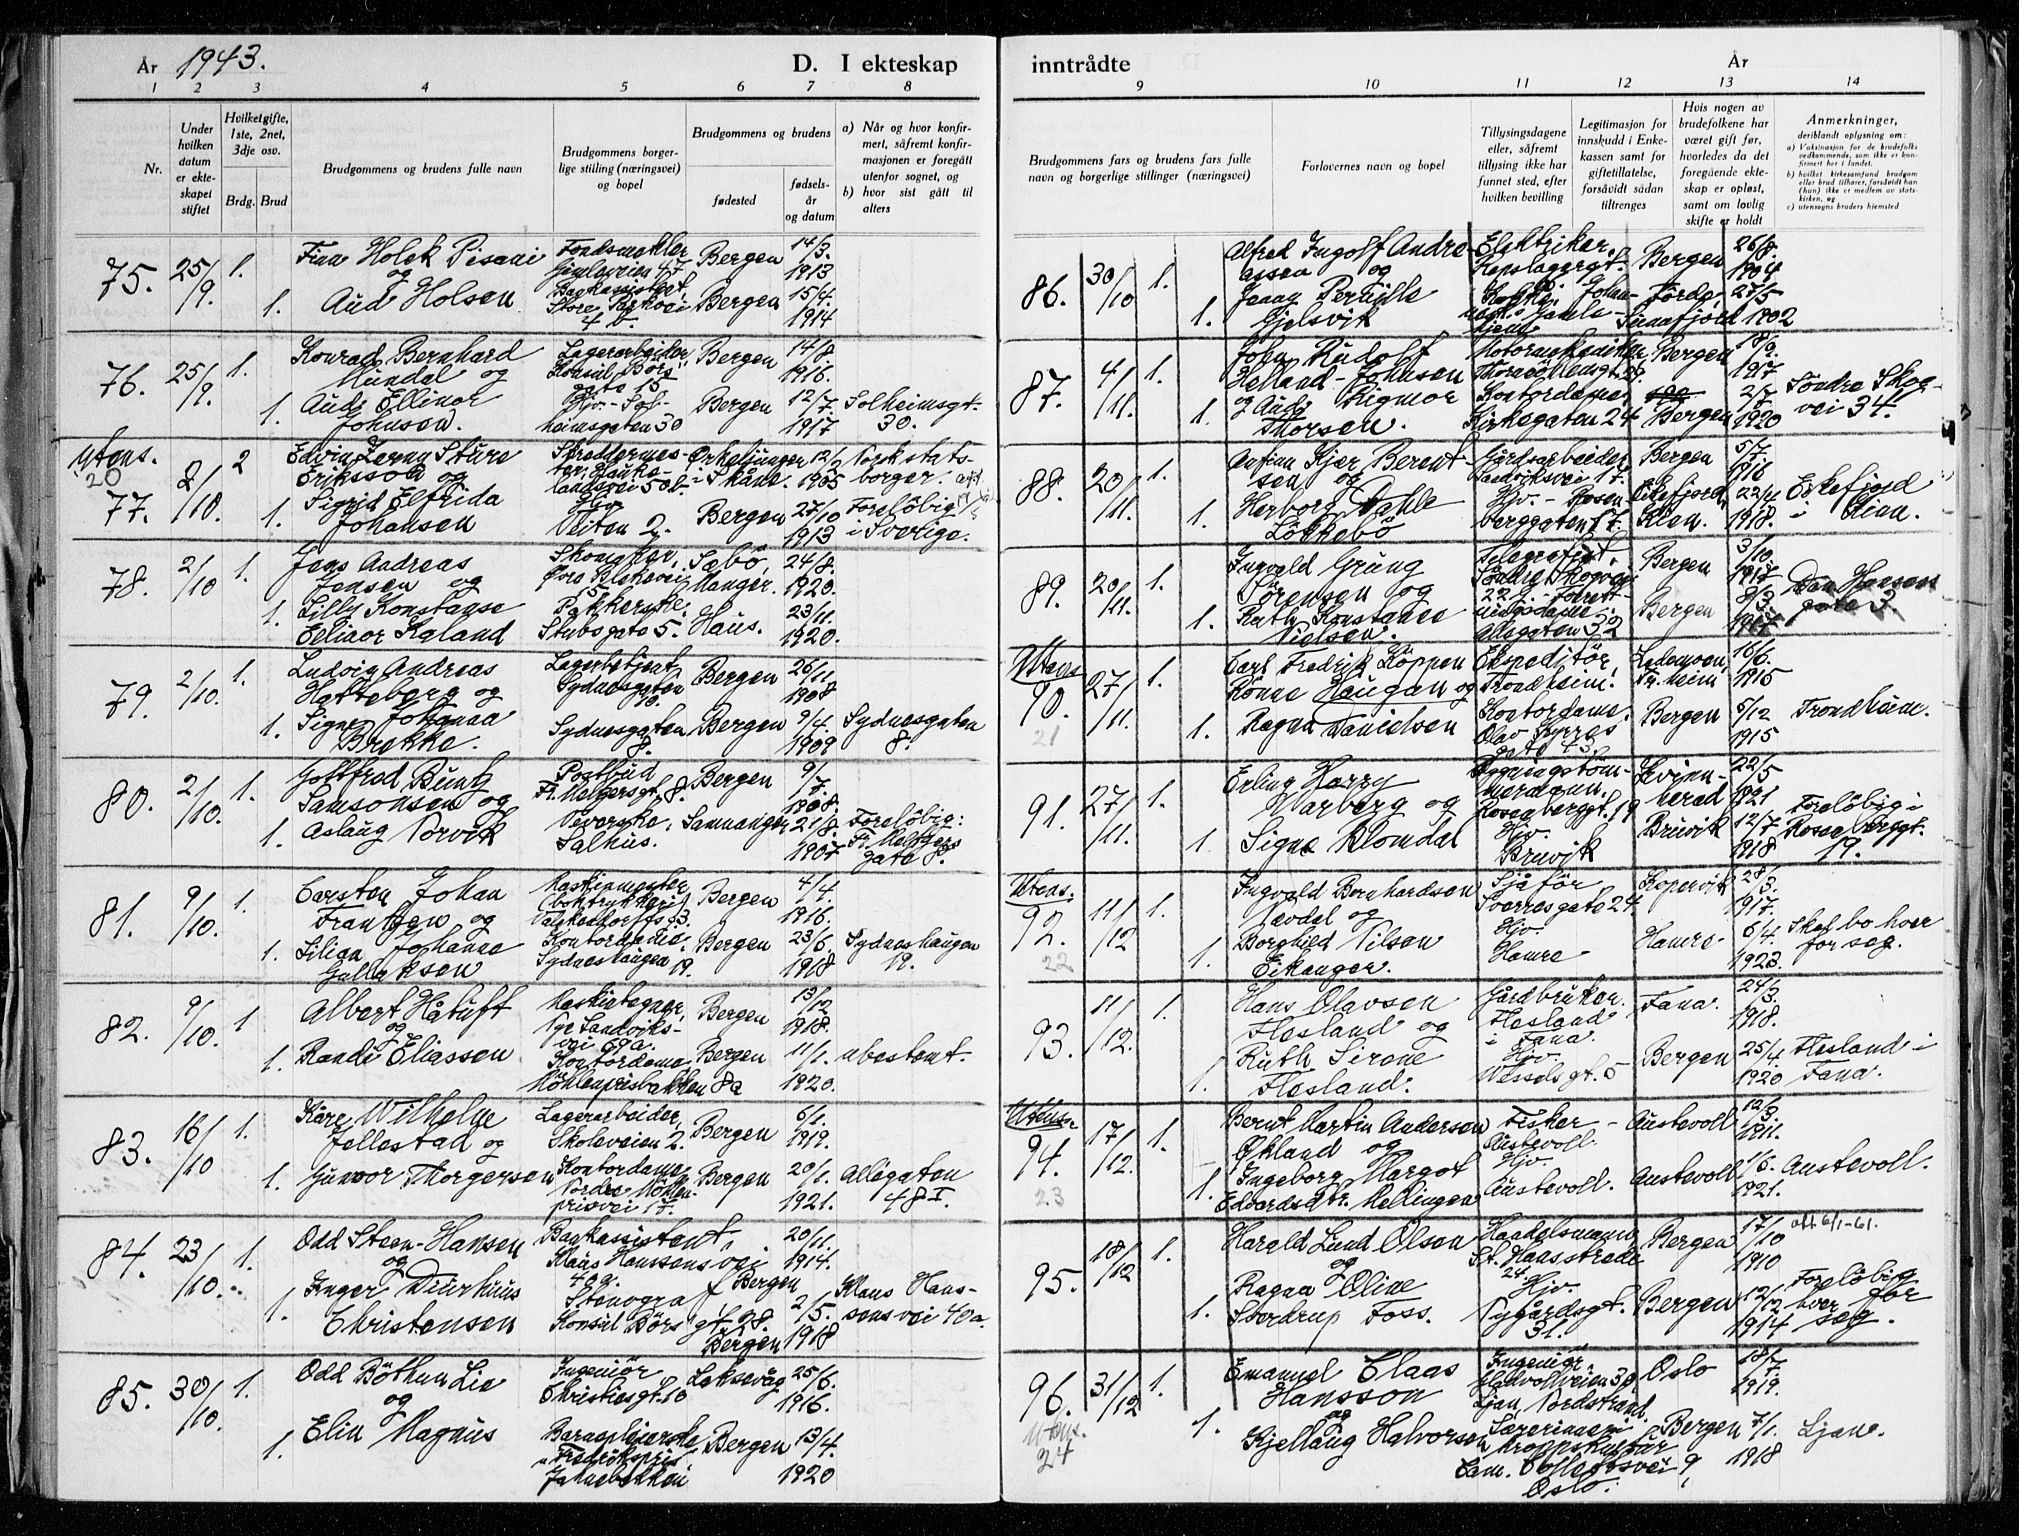 År 1943.
D. I ekteskap
1 2 3 4 5 6 7 8
Nr.
Under hvilken datum er ekteskapet stiftet
Hvilketgifte, 1ste, 2net, 3dje osv.
Brdg. Brud
Brudgommens og brudens fulle navn
Brudgommens borgerlige stilling (næringsvei) og bopel
Brudgommens og brudens
fødested
fødselsår og datum
a) Når og hvor konfirmert, såfremt konfirmasjonen er foregått utenfor sognet, og
b) hvor sist gått til alters
75. 25/9. 1. Finn Holck Pisani Fondsmekler Bergen 14/3.
og Gimleveien 47 1913
1. Aud Holsen Bergen 15/4.
4 b. 1914
76. 25/9. 1. Konrad Bernhard Lagerarbeider, Bergen 14/8.
Mundal og Konsul Børs 1916.
gate 15
1. Aud Ellinor Hjv. - Sol- Bergen 12/7. Solheimsgt.
Johnsen. heimsgaten 30 1917 30.
Utens. 20
77. 2/10. 2 Edvin Sture Skreddermes- 12/2
Eriksson og 1905 borger.
1. Sigrid Elfrida Hjv. Bergen 27/10 Foreløbig
Johansen Veiten 2. 1913 i Sverige.
78. 2/10 1. Jens Andreas Sæbö, 24/8.
Jensen og Manger. 1920.
1. Lilly Konstanse Pakkerske. Haus. 23/11.
Ellinor Kaland Stubsgate 5. 1920.
79. 2/10. 1. Ludvig Andreas Lagerbetjent Bergen 26/11
Hatteberg og Sydnesgaten 1908
1. Signe Johanna Sydnesgaten Bergen 9/4. Sydnesgaten
Brekke. 8. 1909 8.
80. 2/10. 1. Gottfred Buntz Postbud Bergen 9/7.
Samsonsen og Fr. Meltzersgt. 8. 1908.
1. Aslaug Norvik Veverske, Samnanger 21/8. Foreløbig:
Salhus. 1907 Fr. Meltzers
gate 8.
81. 9/10. 1. Carsten Johan Maskinmester Bergen 4/4.
Frantzen og (boktrykkeri) 1916.
1. Lilian Johanne Kontordame, Bergen 23/6 Sydneshaugen
Gullaksen Sydneshaugen 19. 1918 19.
82. 9/10. 1 Albert Håtuft Bergen 13/12
og Nye Sandviks- 1918.
vei 69a.
1. Randi Eliassen Kontordame Bergen 11/1. ubestemt.
Möhlenprisbakken 8a 1920.
83. 16/10 1. Kåre Wilhelm Lagerarbeider, Bergen 6/1.
Jellestad og Skoleveien 2. 1919.
1. Gunvor Thorgersen Kontordame Bergen 20/1. Allégaten
Nordre Möhlen- 1921. 48 I.
prisvei 17.
84. 23/10. 1. Odd Steen-Hansen Bankassistent 20/11.
og Klaus Hanssens vei 1914.
40 a. Bergen
1. Inger Diurhuus Stenograf 2/5. Klaus Hans-
Christensen Konsul Børs gt. 28. 1918 sens vei 40a.
Bergen
85. 30/10. 1. Odd Böthun Lie Ingeniör Laksevåg 25/6.
og Christiesgt. 10 1916.
1. Elin Magnus Barnepleierske, Bergen 13/4.
1920
inntrådte År
9 10 11 12 13 14
Brudgommens fars og brudens fars fulle navn og borgerlige stillinger (næringsvei)
Forlovernes navn og bopel
Tillysingsdagene eller, såfremt tillysing ikke har funnet sted, efter hvilken bevilling
Legitimasjon for innskudd i Enkekassen samt for giftetillatelse, forsåvidt sådan tiltrenges
Hvis nogen av brudefolkene har været gift før, hvorledes da det foregående ekteskap er opløst, samt om lovlig skifte er holdt
Anmerkninger, deriblandt oplysning om:
a) Vaksinasjon for de brudefolks vedkommende, som ikke er konfirmert her i landet.
b) hvilket kirkesamfund brudgom eller brud tilhører, forsåvidt han (hun) ikke er medlem av statskirken, og
c) utensogns bruders hjemsted
86. 30/10 1. Alfred Ingolf Andre- Elektriker, Bergen 26/8.
assen og 1904
1. Jenny Pernille Förde, 27/5
Gjelsvik Sunnfjord 1902
87. 4/11. 1. John Rudolf Bergen 18/9.
Helland-Johnsen 1917
1. og Aud Rigmor Kontordame 2/7. Söndre Skog-
Thorsen. Kirkegaten 24 Bergen 1920 vei 34.
88. 20/11. 1. Kjær Berent- Gårdsarbeider Bergen 5/7.
sen og Sandviksvei 17. 1916
1. Herborg Dahle Hjv. - Rosen- Eikefjord, 22/4 Eikefjord
Løkkebö berggaten 17. Kinn. 1918. i Kinn.
89. 20/11. 1. Ingvald Grung Telegrafist, Bergen 3/10
Sörensen og Söndre Skogvei 1917
1. Ruth Konstanse Bergen 9/3. Dan Hansens
Nielsen. Allégaten 32 1917 gate 3.
Utens.
90. 21 27/11. 1. Carl Fredrik Köppen Ekspeditör, Lademoen, 16/6.
Rönne Haugan og Trondheim. Tr.heim 1915
1. Ragna Danielsen Kontordame. Bergen 5/12 Trondheim.
Olav Kyrres 1915
gate 43.
91. 27/11. 1. Erling Harry Kvinn- 22/5
Warberg og herad 1921
Rosenberggt. 19
1. Signe Romdal Hjv. Bruvik 12/7 Foreløbig i
Bruvik 1918 Rosenberggt.
19.
Utens.
92. 22 11/12 1. Ingvald Bernhardsen Sjåför Kopervik 28/3.
Nevdal og Sverresgate 24 1917.
1. Borghild Nilsen Hjv. Hamre 6/4. Skal bo hver
Eikanger. Hamre 1923. for seg.
93. 11/12. 1. Hans Olavsen Gårdbruker. Fana. 24/3.
Flesland og Flesland 1918.
i Fana.
1. Ruth Sirene Hjv. Bergen 25/4. Flesland i
Flesland. Wesselsgt. 5 1920 Fana.
Utens.
94. 23 17/12. 1. Bernt Martin Andersen Fisker - Austevoll 12/3.
Økland og Austevoll. 1911.
1. Ingeborg Margot Hjv. Austevoll 1/6. Austevoll.
Edvardsdtr. Mellingen Austevoll. 1921.
95. 18/12 1. Harald Lund Olsen Handelsmann Bergen 17/10 att 6/1-61.
og 24. 1910
1. Ragna Oline Hjv. Bergen 12/12 Foreløbig
Sverdrup Foss. Nygårdsgt. 1914 hver for
31. seg.
96. 31/12 1. Emanuel Claas Ingeniör. Oslo 18/7.
Hansson 1919.
og Ljan, Nordstrand.
Utens. 24
1. Kjellaug Halvorsen Bergen 7/1. Ljan.
Cam. Colletts vei 9, 1918
Oslo.